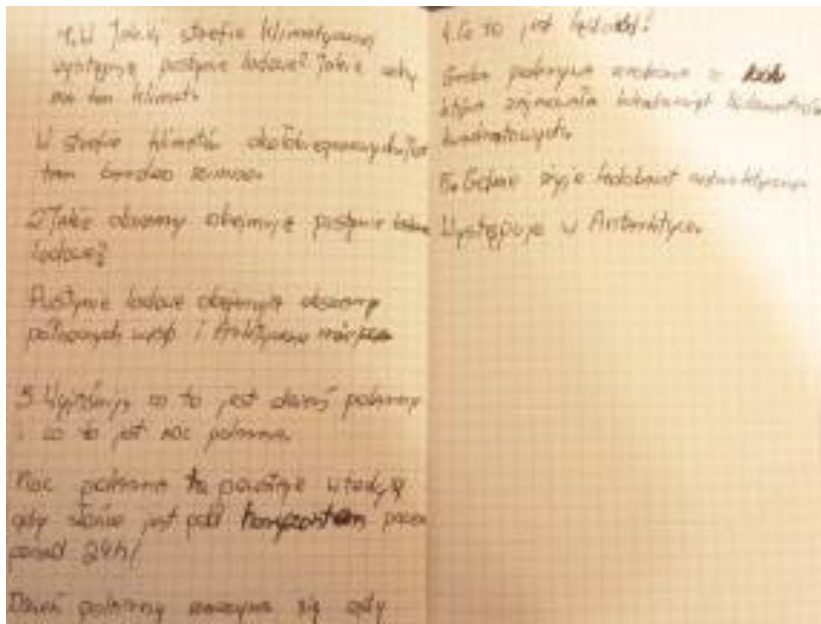 1. W jakiej strefie klimatycznej
występuje pustynie lodowe? Jakie cechy
ma ten klimat.
W strefie klimatów okołobiegunowych. Jest
tam bardzo zimno.
2. Jakie obszary obejmują pustynie
lodowe?
Pustynie lodowe obejmują obszary
północnych wysp i
3. Wyjaśnij, co to jest dzień polarny
i co to jest noc polarna.
Noc polarna powstaje wtedy
gdy słońce jest pod horyzontem przez
ponad 24h/
Dzień polarny zaczyna się gdy
4. Co to jest lądolód?
Gruba pokrywa z
która zajmowała kilometrów
kwadratowych.
5. Gdzie żyje
Występuje w Antarktyce.